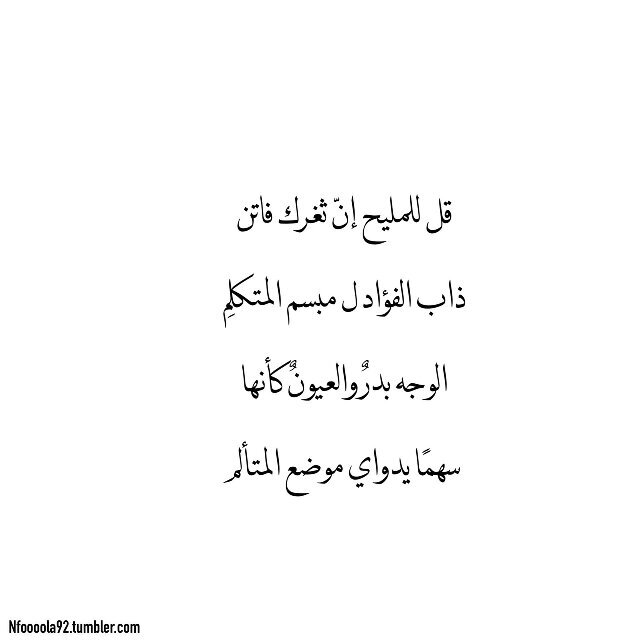 قل للمليح إنّ ثغرك فاتن
ذاب الفؤاد ل مبسم المتكلمِ
الوجه بدرٌ والعيونٌ كأنها
سهمًا يدواي موضع المتألم
Nfoooola92.tumbler.com